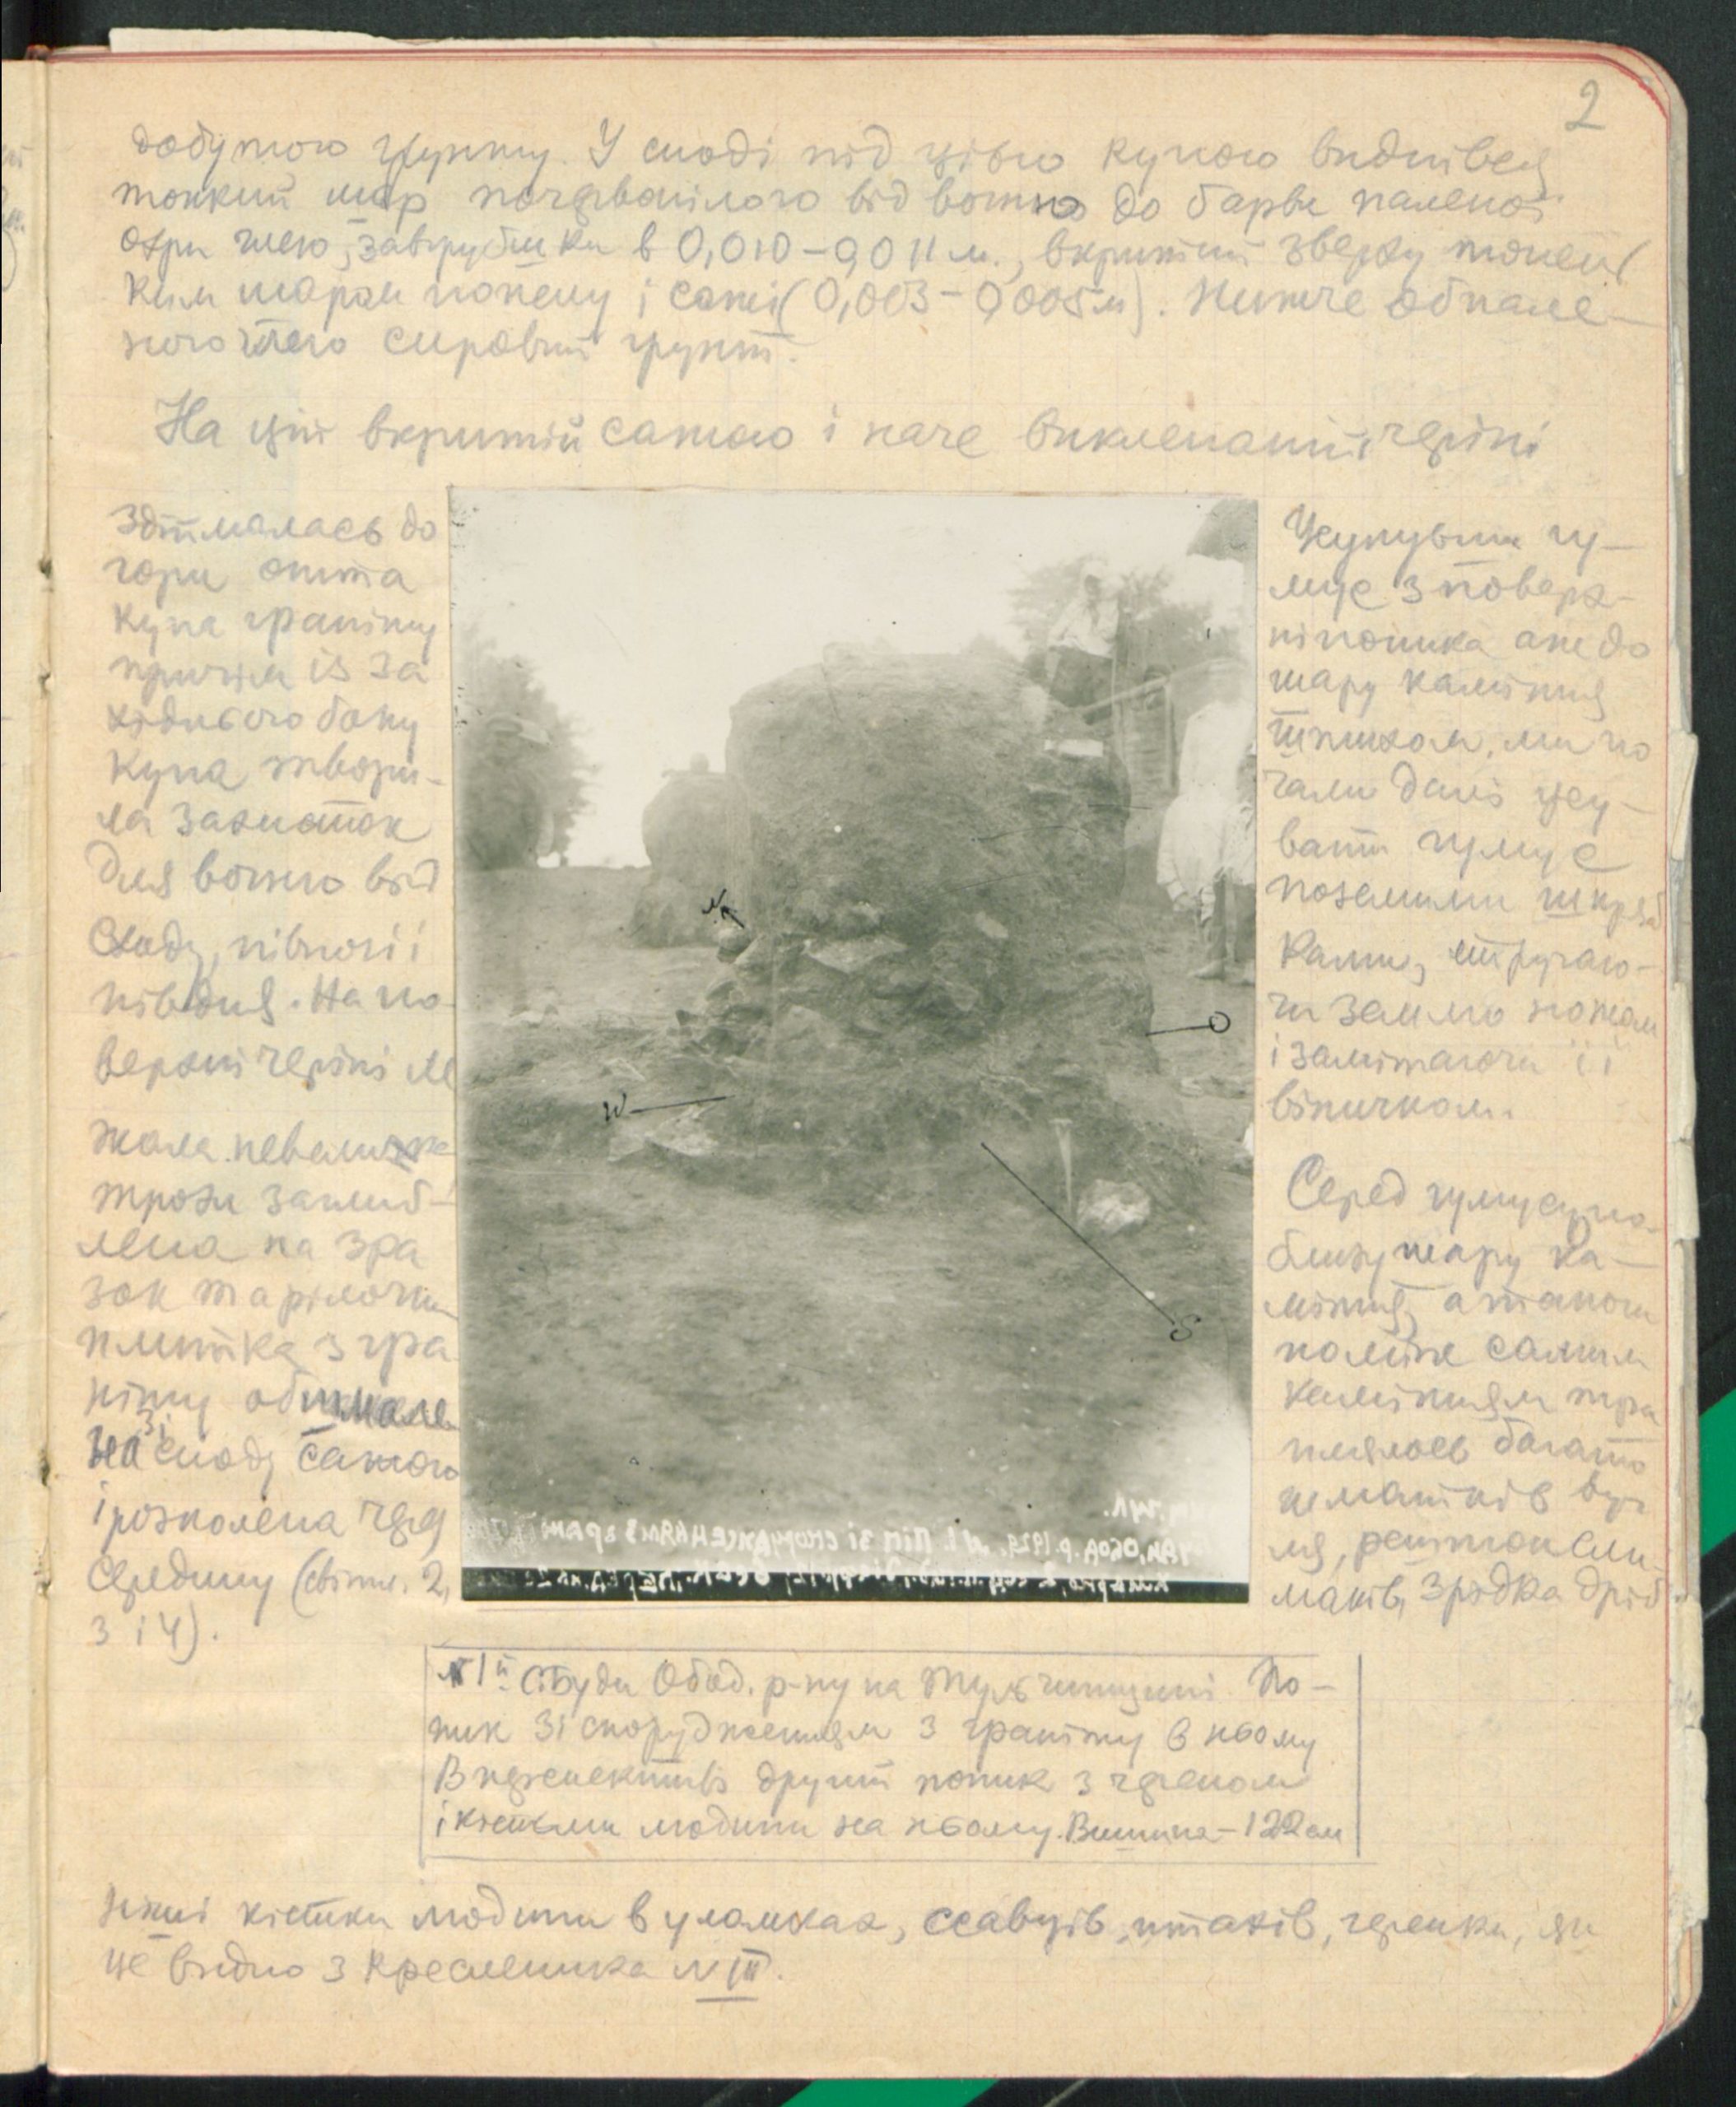 2
добутого ґрунту. У споді під цією купою виднівся
тонкий шар почервонілого від вогню до барви паленої
охри глею, завгрубшки в 0,010–0,011 м., вкритий зверху тонень
ким шаром попелу і сажі (0,003–0,005 м). Нижче обпале–
ного глею сировий ґрунт.
На цій вкритій сажою і наче виклепаній черіні
здіймалась до
гори ота
купа граніту
причім із За
хіднього боку
купа твори–
ла захисток
для вогню від
Сходу, півночі і
півдня. На по
верхні черіні ле
жала невеличка
трохи заглиб–
лена на зра
зок тарілочки
плитка з гра
ніту обпале
на зі споду сажою
і розколена через
середину (світл. 2,
3 і 4).
Усунувши гу–
мус з поверх–
ні попика аж до
шару каміння
штихом, ми по
чали далі усу–
вати гумус
поземими шкряб
ками, стругаю–
чи землю ножем
і замітаючи її
віничком.
Серед гумусу по–
близу шару ка–
міння, а також
поміж самим
камінням тра
плялось багато
шматків вуг
ля, решток сли–
маків, зрідка дріб
N
O
W
S
№ 1й С. Буди Обод. р-ну на Тульчинщині По–
пик зі спорудженням з граніту в ньому
В перспективі другий попик з черепом
і кістьми людини на ньому. Вишина – 122 см
ніші кістки людини в уламках, ссавців, птахів, черепки, як
це видно з кресленика № III.